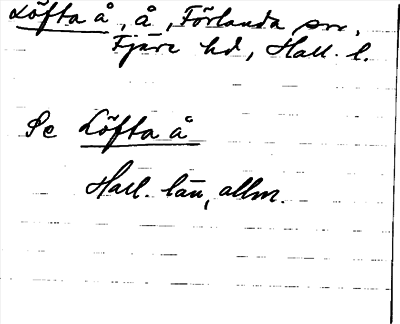 Löfta å, å, Förlanda sn,
Fjäre hd, Hall. l.
Se Löfta å
Hall. län, allm.